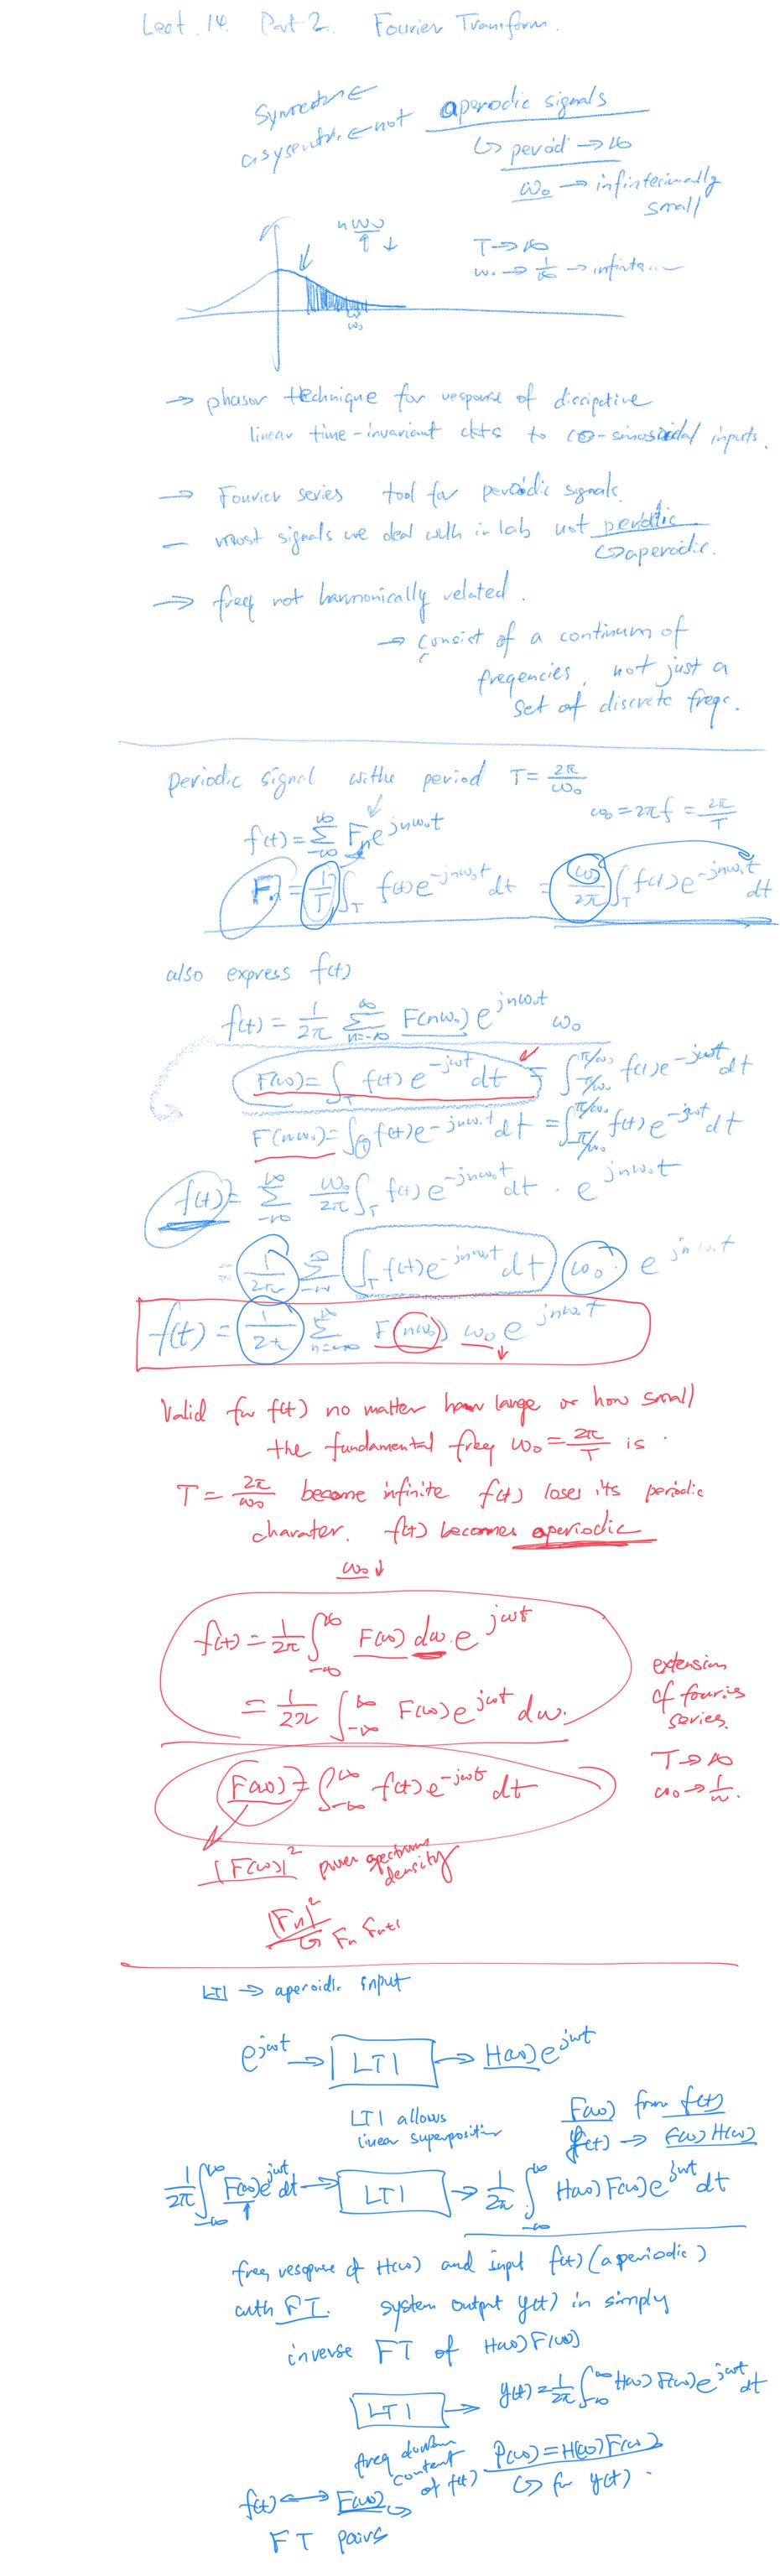 Lect. 14. Part 2. Fourier Transform.
aperodic signals
↳ period → ∞
ω₀ → infinterimally
small
nω₀
T → ∞
ω₀ → 1/∞ → infinte...
ω₀
→ phasor technique for response of dissipative
linear time-invariant ckts to co-sinosoidal inputs.
→ Fourier series tool for periodic signals.
— most signals we deal with in lab not periodic
↳ aperodic.
→ freq not harmonically related.
→ Consist of a continum of
freqencies, not just a
set of discrete freqs.
Periodic signal withe period T = 2π/ω₀
ω₀ = 2πf = 2π/T
f(t) = ∑_{-∞}^{∞} Fₙ e^{jnω₀t}
Fₙ = 1/T ∫_T f(t) e^{-jnω₀t} dt = ω₀/2π ∫_T f(t) e^{-jnω₀t} dt
also express f(t)
f(t) = 1/2π ∑_{n=-∞}^{∞} F(nω₀) e^{jnω₀t} ω₀
F(ω) = ∫_T f(t) e^{-jωt} dt = ∫_{-π/ω₀}^{π/ω₀} f(t) e^{-jωt} dt
F(nω₀) = ∫_T f(t) e^{-jnω₀t} dt = ∫_{-π/ω₀}^{π/ω₀} f(t) e^{-jωt} dt
f(t) = ∑_{-∞}^{∞} ω₀/2π ∫_T f(t) e^{-jnω₀t} dt · e^{jnω₀t}
= 1/2π ∑_{-∞}^{∞} ∫_T f(t) e^{-jnω₀t} dt ω₀ · e^{jnω₀t}
f(t) = 1/2π ∑_{n=-∞}^{∞} F(nω₀) ω₀ e^{jnω₀t}
Valid for f(t) no matter how large or how small
the fundamental freq ω₀ = 2π/T is.
T = 2π/ω₀ become infinite f(t) loses its periodic
charater. f(t) becomes aperiodic
ω₀ ↓
f(t) = 1/2π ∫_{-∞}^{∞} F(ω) dω · e^{jωt}
= 1/2π ∫_{-∞}^{∞} F(ω) e^{jωt} dω.
extension
of fouries
series.
T → ∞
ω₀ → 1/∞.
F(ω) = ∫_{-∞}^{∞} f(t) e^{-jωt} dt
|F(ω)|² power spectrum
density
|Fₙ|²
Fₙ Fₙ₊₁
LTI → aperoidic input
e^{jωt} → LTI → H(ω) e^{jωt}
LTI allows
linear superposition
F(ω) from f(t)
f(t) → F(ω) H(ω)
1/2π ∫_{-∞}^{∞} F(ω) e^{jωt} dt → LTI → 1/2π ∫_{-∞}^{∞} H(ω) F(ω) e^{jωt} dt
freq response of H(ω) and input f(t) (aperiodic)
with FT. system output y(t) in simply
inverse FT of H(ω) F(ω)
LTI → y(t) = 1/2π ∫_{-∞}^{∞} H(ω) F(ω) e^{jωt} dt
freq domain
content
of f(t)
P(ω) = H(ω) F(ω)
↳ for y(t).
f(t) ↔ F(ω)
FT pairs